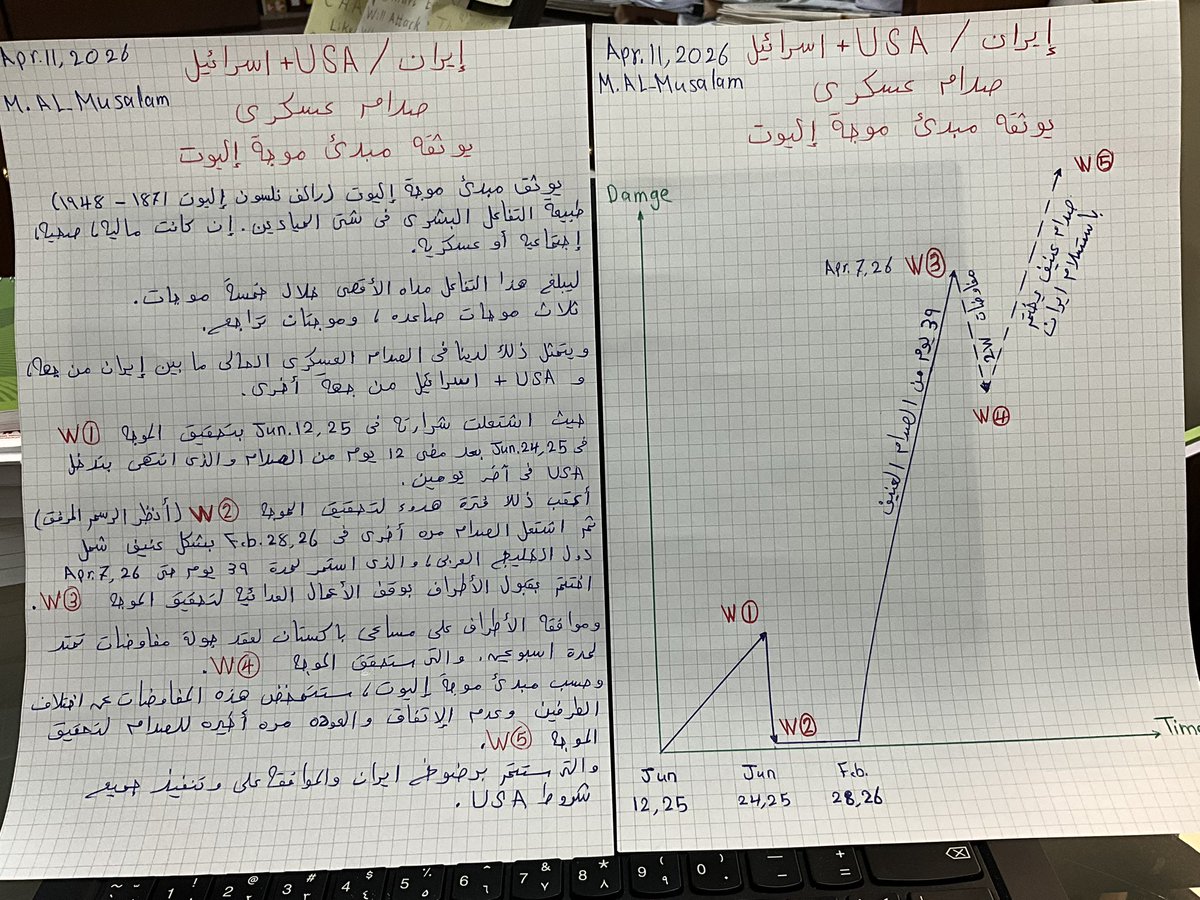 Apr.11, 2026
M. AL-Musalam
إيران / USA + اسرائيل
صدام عسكرى
يوثقه مبدئ موجة إليوت
يوثق مبدئ موجة إليوت (رالف نلسون إليوت 1871 – 1948)
طبيعة التفاعل البشرى فى شتى الميادين. إن كانت مالية، صحية،
إجتماعية أو عسكرية.
ليبلغ هذا التفاعل مداه الأقصى خلال خمسة موجات.
ثلاث موجات صاعده، وموجتان تراجع.
ويتمثل ذلك لدينا فى الصدام العسكرى الحالى ما بين إيران من جهة،
و USA + اسرائيل من جهة أخرى.
حيث اشتعلت شرارته فى Jun.12,25 بتحقيق الموجة W①
فى Jun.24,25 بعد مضى 12 يوم من الصدام والذى انتهى بتدخل
USA فى آخر يومين.
أعقب ذلك فترة هدوء لتحقيق الموجة W② (أنظر الرسم المرفق)
ثم اشتعل الصدام مره أخرى فى Feb.28,26 بشكل عنيف شمل
دول الخليج العربى، والذى استمر لمدة 39 يوم حتى Apr.7,26
اختتم بقبول الأطراف بوقف الأعمال العدائية لتحقيق الموجة W③.
وموافقة الأطراف على مساعى باكستان لعقد جولة مفاوضات تمتد
لمدة اسبوعين. والتى ستحقق الموجة W④.
وحسب مبدئ موجة إليوت، ستتمخض هذه المفاوضات عن اختلاف
الطرفين وعدم الإتفاق والعوده مره أخيره للصدام لتحقيق
الموجة W⑤.
والتى ستختم برضوخ ايران والموافقة على وتنفيذ جميع
شروط USA.
Apr.11, 2026
M. AL-Musalam
إيران / USA + اسرائيل
صدام عسكرى
يوثقه مبدئ موجة إليوت
Damge
W⑤
Apr.7,26 W③
39 يوم من الصدام العنيف
مفاوضات
2W
صدام عنيف يختم
باستسلام ايران
W④
W①
W②
Time
Jun
12,25
Jun
24,25
Feb.
28,26